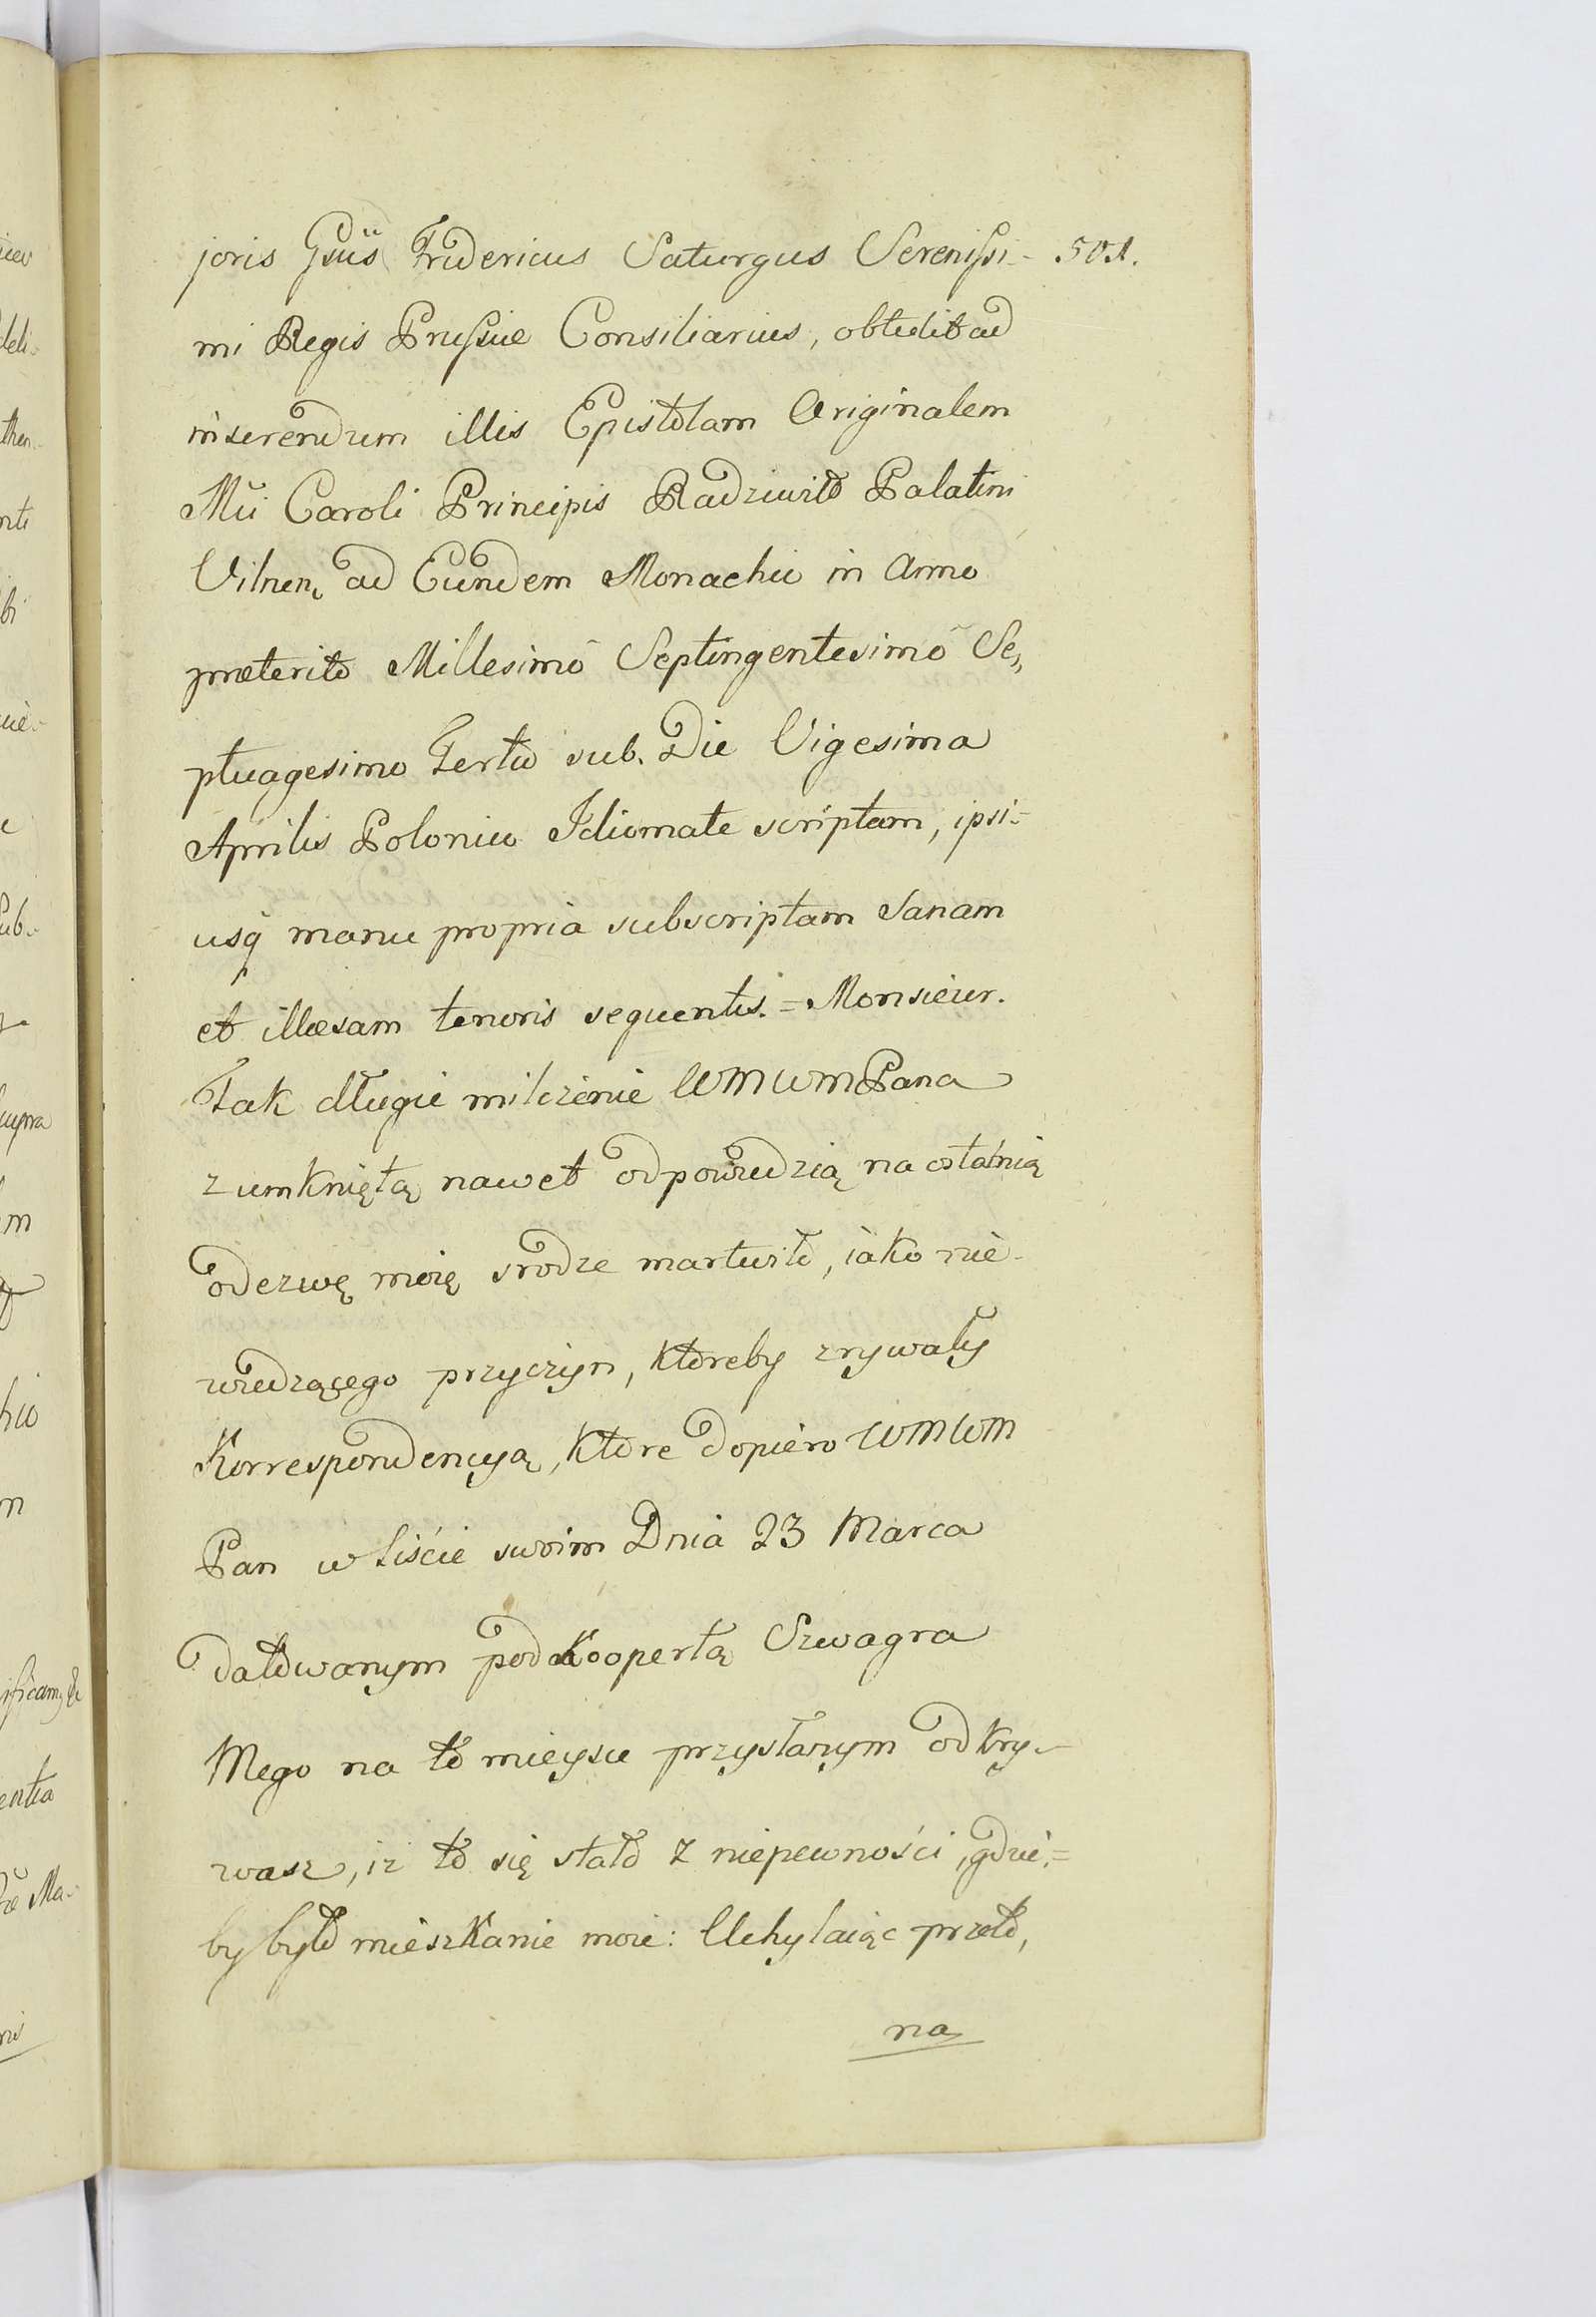 joris Gsus Fridericus Saturgus Serenissi- 501.
mi Regis Prussiæ Consiliarius, obtulit ad
inserendum illis Epistolam Originalem
Mci Caroli Principis Radziwiłł Palatini
Vilnen, ad Eundem Monachio in Anno
præterito Millesimō Septingentesimō Se,,
ptuagesimo Tertio sub. Die Vigesima
Aprilis Polonico Idiomate scriptam, ipsi-
usq manu propria subscriptam Sanam
et illæsam tenoris sequentis.=Monsieur.
Tak długie milczenie WMWMPana
z umkniętą nawet odpowiedzią na ostatnią
odezwę moię srodze martwiło, iako nie-
wiedzącego przyczyn, ktoreby zrywały
Korrespondencyą, ktore dopiero WMWM
Pan w liście swoim Dnia 23 Marca
Datowanym pod Koopertą Szwagra
Mego na to mieysce przysłanym odkry-
wasz, iz to się stało z niepewności, gdzie=
by było mieszkanie moie: Uchylaiąc przeto,
na